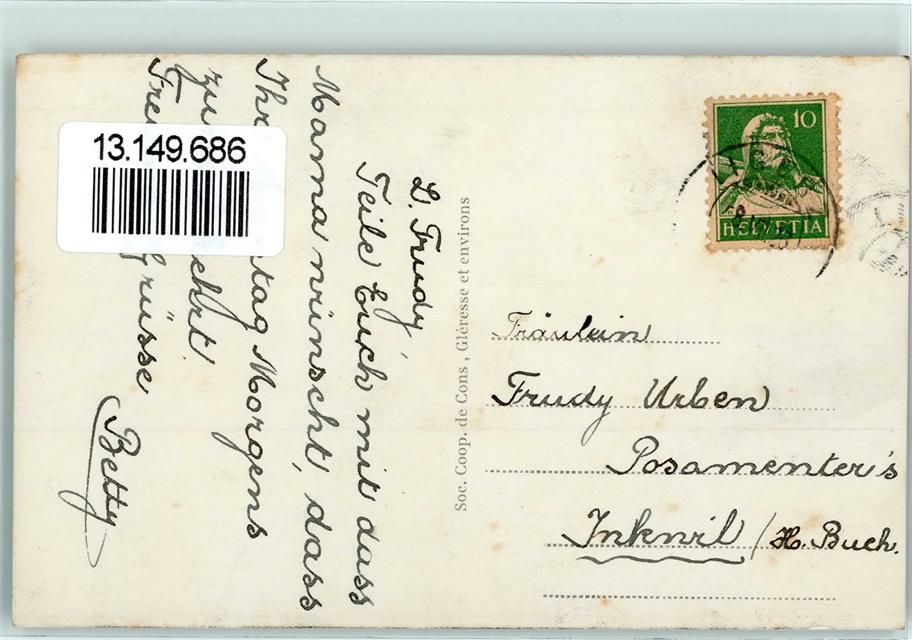 13.149.686
L. Trudy,
Teile Euch mit dass
Mama wünscht, dass
Ihr tag Morgens
kehrt.
grüsse
Betty
Soc. Coop. de Cons, Gléresse et environs
10
HELVETIA
Fräulein
Trudy Urben
Posamenter's
Inkwil / H. Buch.